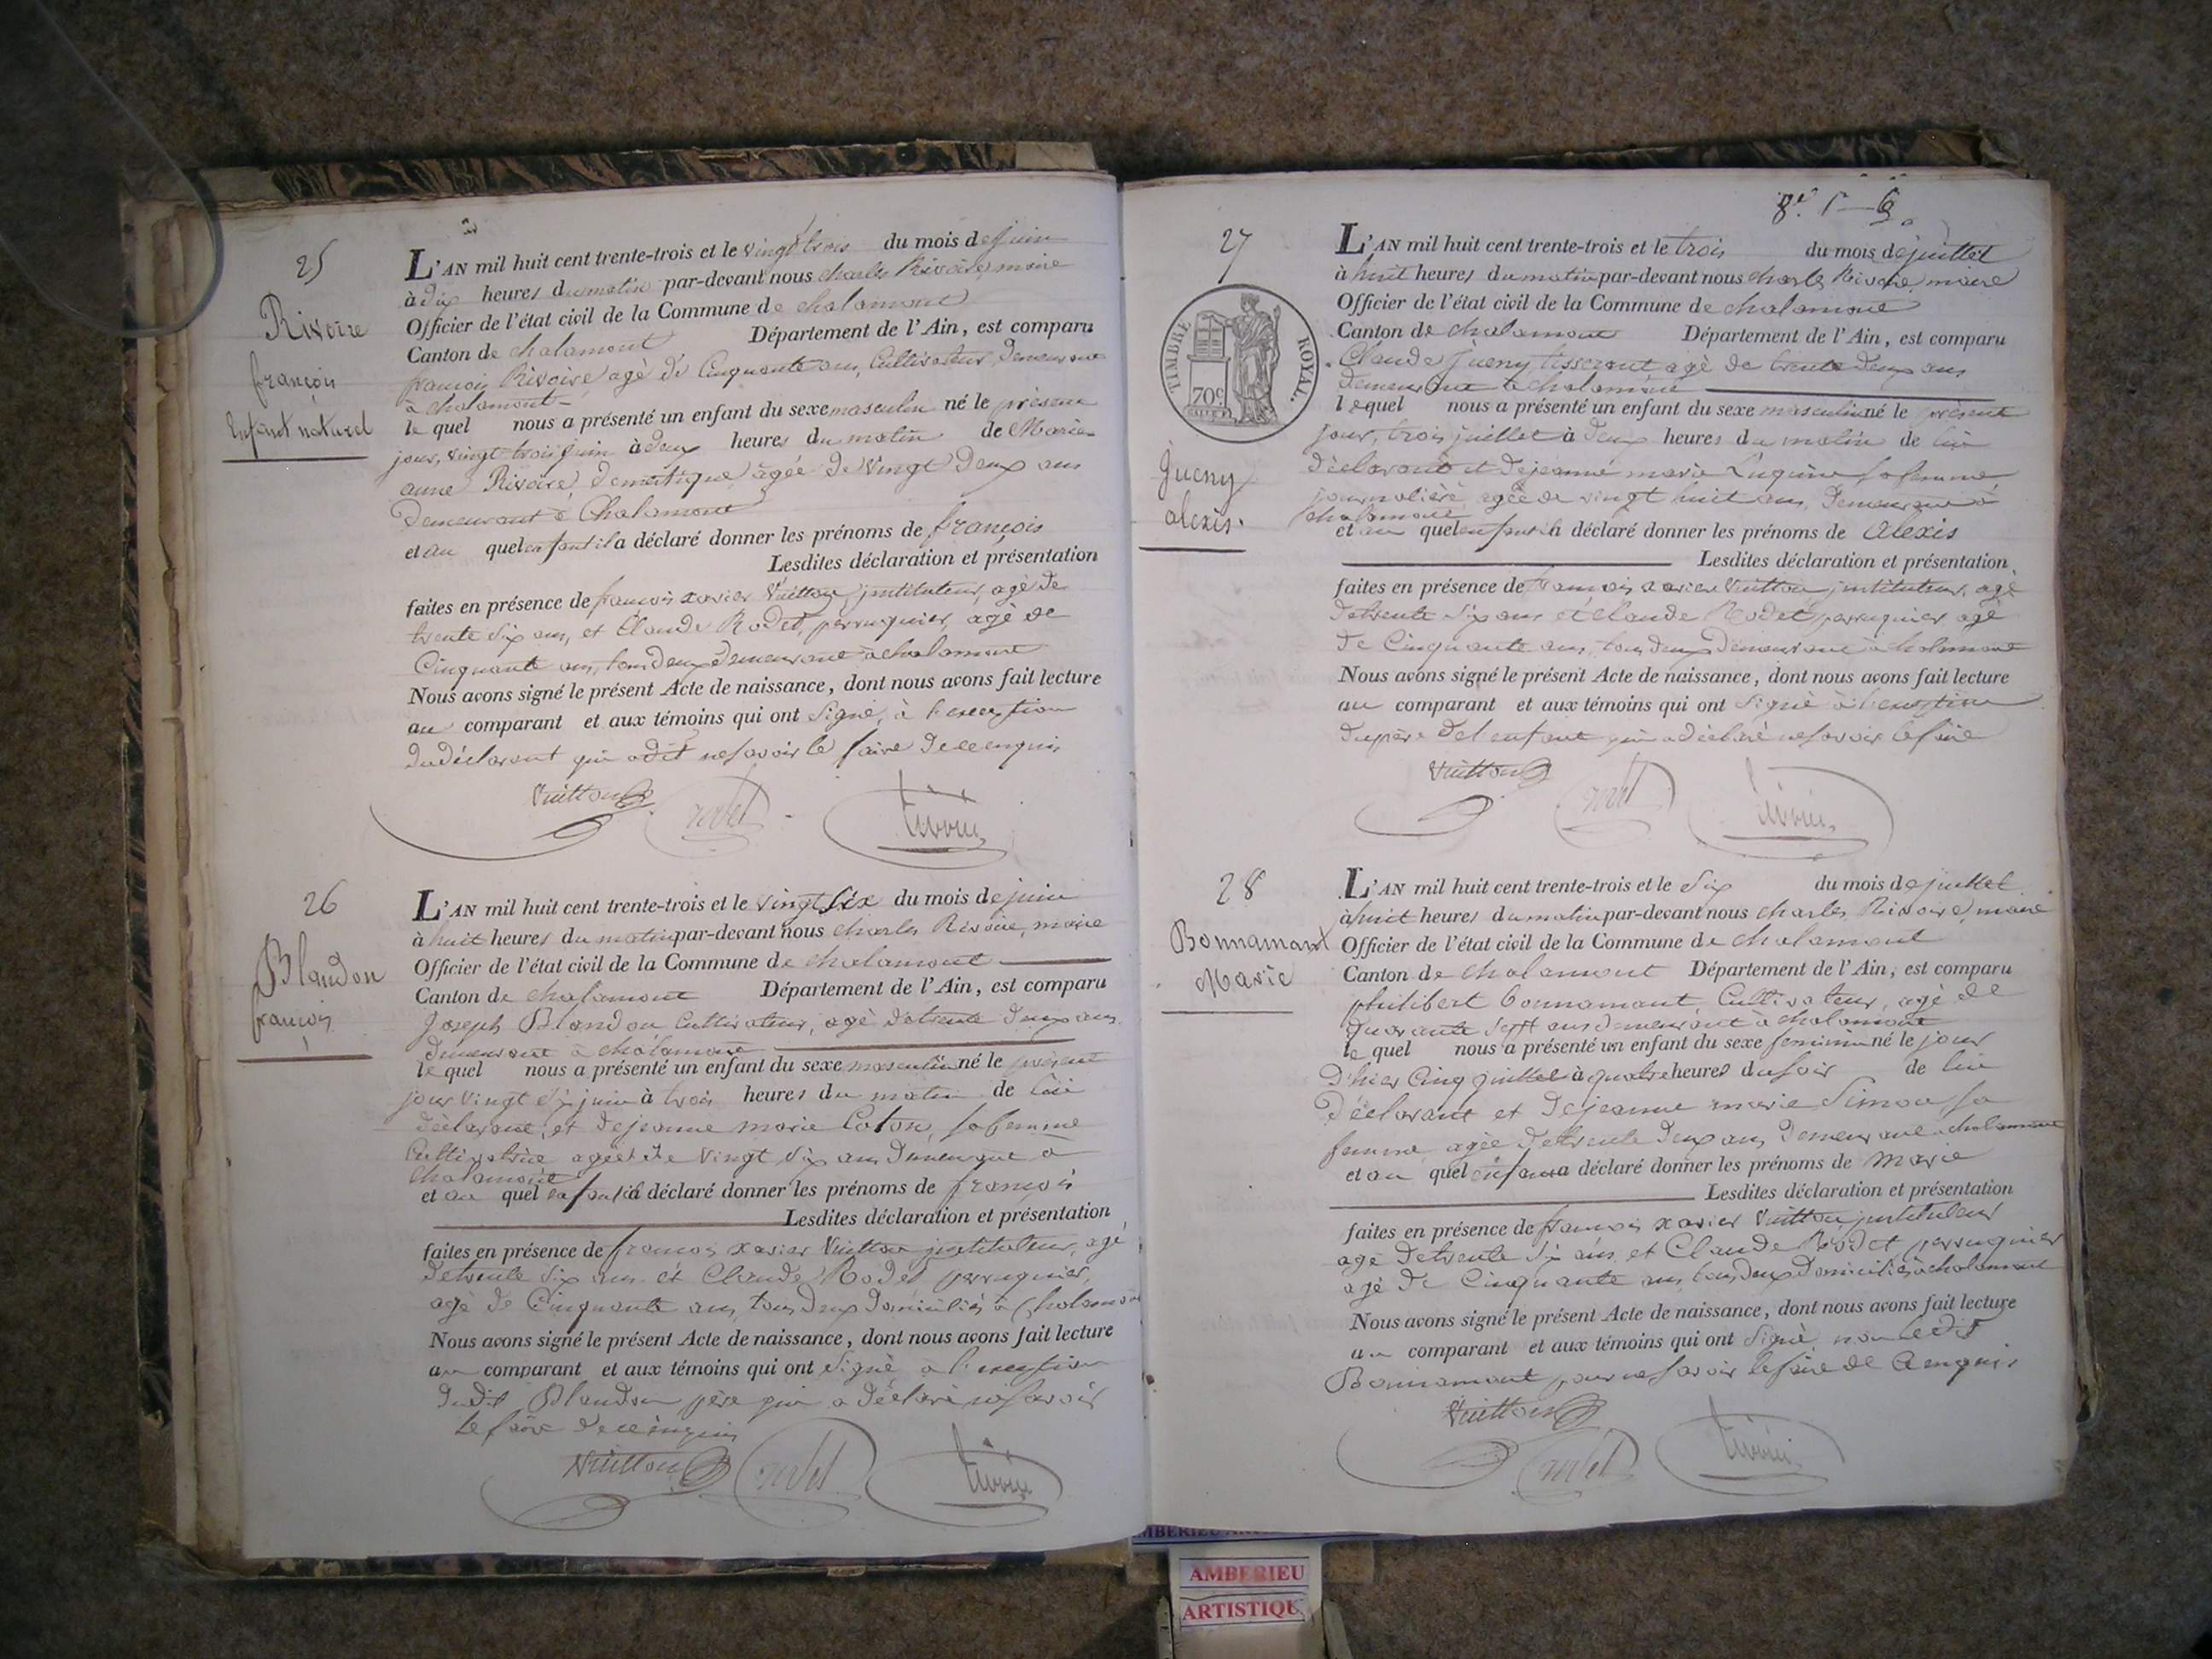 25
Rivoire
françois
Enfant naturel
L'AN mil huit cent trente-trois et le vingt trois du mois de juin
à dix heures du matin par-devant nous charles Rivoire, maire
Officier de l'état civil de la Commune de chalamont
Canton de chalamont Département de l'Ain, est comparu
françois Rivoire agé de Cinquante ans, Cultivateur, Demeurant
à chalamont
le quel nous a présenté un enfant du sexe masculin né le présent
jour, vingt trois juin à deux heures du matin de Marie
anne Rivoire, Domestique âgée de vingt Deux ans
Demeurant à Chalamont
et au quel enfant il a déclaré donner les prénoms de françois
Lesdites déclaration et présentation
faites en présence de françois xavier Vuitton, instituteur, agé de
trente six ans, et Claude Rodet, perruquier, agé de
Cinquante ans, tous deux Demeurant à chalamont
Nous avons signé le présent Acte de naissance, dont nous avons fait lecture
au comparant et aux témoins qui ont signé, à l'exception
du déclarant qui a dit ne savoir le faire De ce enquis
Vuitton
rodet
26
Blandon
françois
L'AN mil huit cent trente-trois et le vingt six du mois de juin
à huit heures du matin par-devant nous charles Rivoire, maire
Officier de l'état civil de la Commune de chalamont
Canton de chalamont Département de l'Ain, est comparu
Joseph Blandon Cultivateur, agé de trente Deux ans
Demeurant à chalamont
le quel nous a présenté un enfant du sexe masculin né le présent
jour vingt six juin à trois heures du matin de lui
déclarant, et de jeanne marie Coton, sa femme
Cultivatrice agée de vingt six ans Demeurant à
chalamont
et au quel enfant il a déclaré donner les prénoms de françois
Lesdites déclaration et présentation
faites en présence de françois xavier Vuitton instituteur, agé
de trente six ans et Claude Rodet perruquier,
agé de Cinquante ans, tous Deux Domiciliés à Chalamont
Nous avons signé le présent Acte de naissance, dont nous avons fait lecture
au comparant et aux témoins qui ont signé à l'exception
dudit Blandon père qui a Déclaré ne savoir
le faire De ce enquis
Vuitton
rodet
27
TIMBRE ROYAL.
70c
Jueny
alexis.
L'AN mil huit cent trente-trois et le trois du mois de juillet
à huit heures du matin par-devant nous charles Rivoire, maire
Officier de l'état civil de la Commune de chalamont
Canton de chalamont Département de l'Ain, est comparu
Claude Jueny tisserant agé de trente Deux ans
Demeurant à chalamont
le quel nous a présenté un enfant du sexe masculin né le présent
jour, trois juillet à Deux heures du matin de lui
Déclarant et De jeanne marie sa femme,
journalière, agée de vingt huit ans, Demeurant à
chalamont
et au quel enfant il a déclaré donner les prénoms de alexis
Lesdites déclaration et présentation
faites en présence de françois xavier Vuitton, instituteur, agé
de trente six ans et Claude Rodet perruquier agé
De Cinquante ans, tous Deux Demeurant à chalamont
Nous avons signé le présent Acte de naissance, dont nous avons fait lecture
au comparant et aux témoins qui ont signé à l'exception
du père De l'enfant qui a déclaré ne savoir le faire
Vuitton
rodet
28
Bonnamant
Marie
L'AN mil huit cent trente-trois et le six du mois de juillet
à huit heures du matin par-devant nous charles Rivoire, maire
Officier de l'état civil de la Commune de chalamont
Canton de chalamont Département de l'Ain, est comparu
philibert bonnamant Cultivateur, agé de
quarante sept ans demeurant à chalamont
le quel nous a présenté un enfant du sexe feminin né le jour
D'hier Cinq juillet à quatre heures du soir de lui
Déclarant et De jeanne marie Simon sa
femme agée De trente Deux ans, Demeurant à chalamont
et au quel enfant a déclaré donner les prénoms de marie
Lesdites déclaration et présentation
faites en présence de françois xavier Vuitton instituteur
agé De trente six ans et Claude Rodet perruquier
agé De Cinquante ans, tous deux Domiciliés à chalamont
Nous avons signé le présent Acte de naissance, dont nous avons fait lecture
au comparant et aux témoins qui ont signé non ledit
Bonnamant pour ne savoir le faire de ce enquis
Vuitton
rodet
AMBERIEU
ARTISTIQU